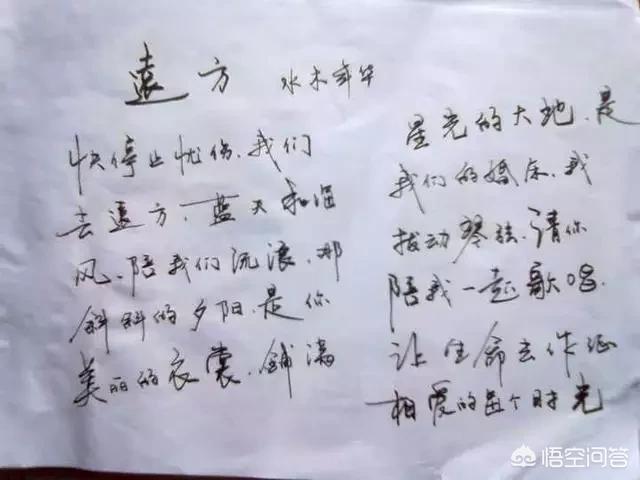 遠方 水木年华
快停止忧伤,我们
去遠方,蓝天和海
风,陪我们流浪,那
斜斜的夕阳,是你
美丽的衣裳,铺满
星光的大地,是
我们的婚床,我
拨动琴弦,请你
陪我一起歌唱.
让生命去作证
相爱的每个时光
悟空问答